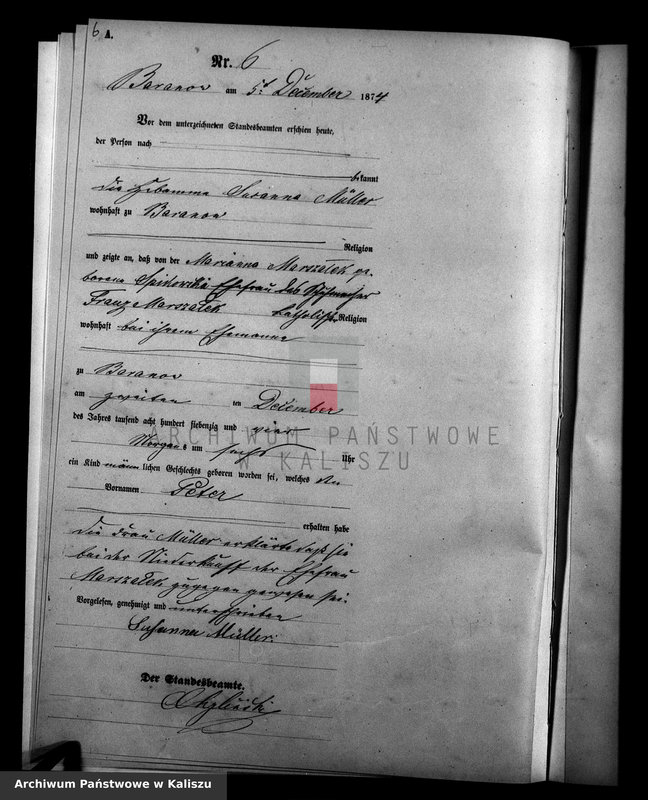 6 A.
Nr. 6
Baranow am 5t. December 1874
Vor dem unterzeichneten Standesbeamten erschien heute,
der Person nach
bekannt
die Hebamme Susanna Müller
wohnhaft zu Baranow
Religion
und zeigte an, daß von der Marianna Marszałek ge-
borene Ehefrau des
Franz Marszałek katholischer Religion
wohnhaft bei ihrem Ehemanne
zu Baranow
am zweiten ten December
des Jahres tausend acht hundert siebenzig und vier
Morgens um sechs Uhr
ein Kind männlichen Geschlechts geboren worden sei, welches den
Vornamen Peter
erhalten habe
Die Frau Müller erklärte daß sie
bei der Niederkunft der Ehefrau
Marszałek zugegen gewesen sei.
Vorgelesen, genehmigt und unterschrieben
Susanna Müller
Der Standesbeamte.
ARCHIWUM PAŃSTWOWE
W KALISZU
Archiwum Państwowe w Kaliszu